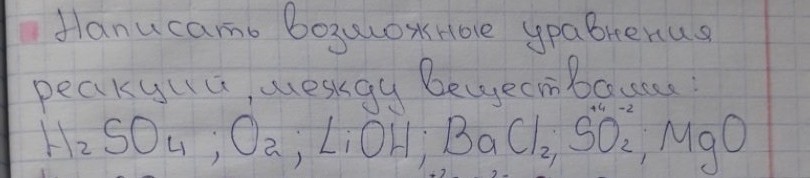 Написать возможные уравнения
реакций, между веществами:
+4 -2
H₂SO₄; O₂; LiOH; BaCl₂; SO₂; MgO